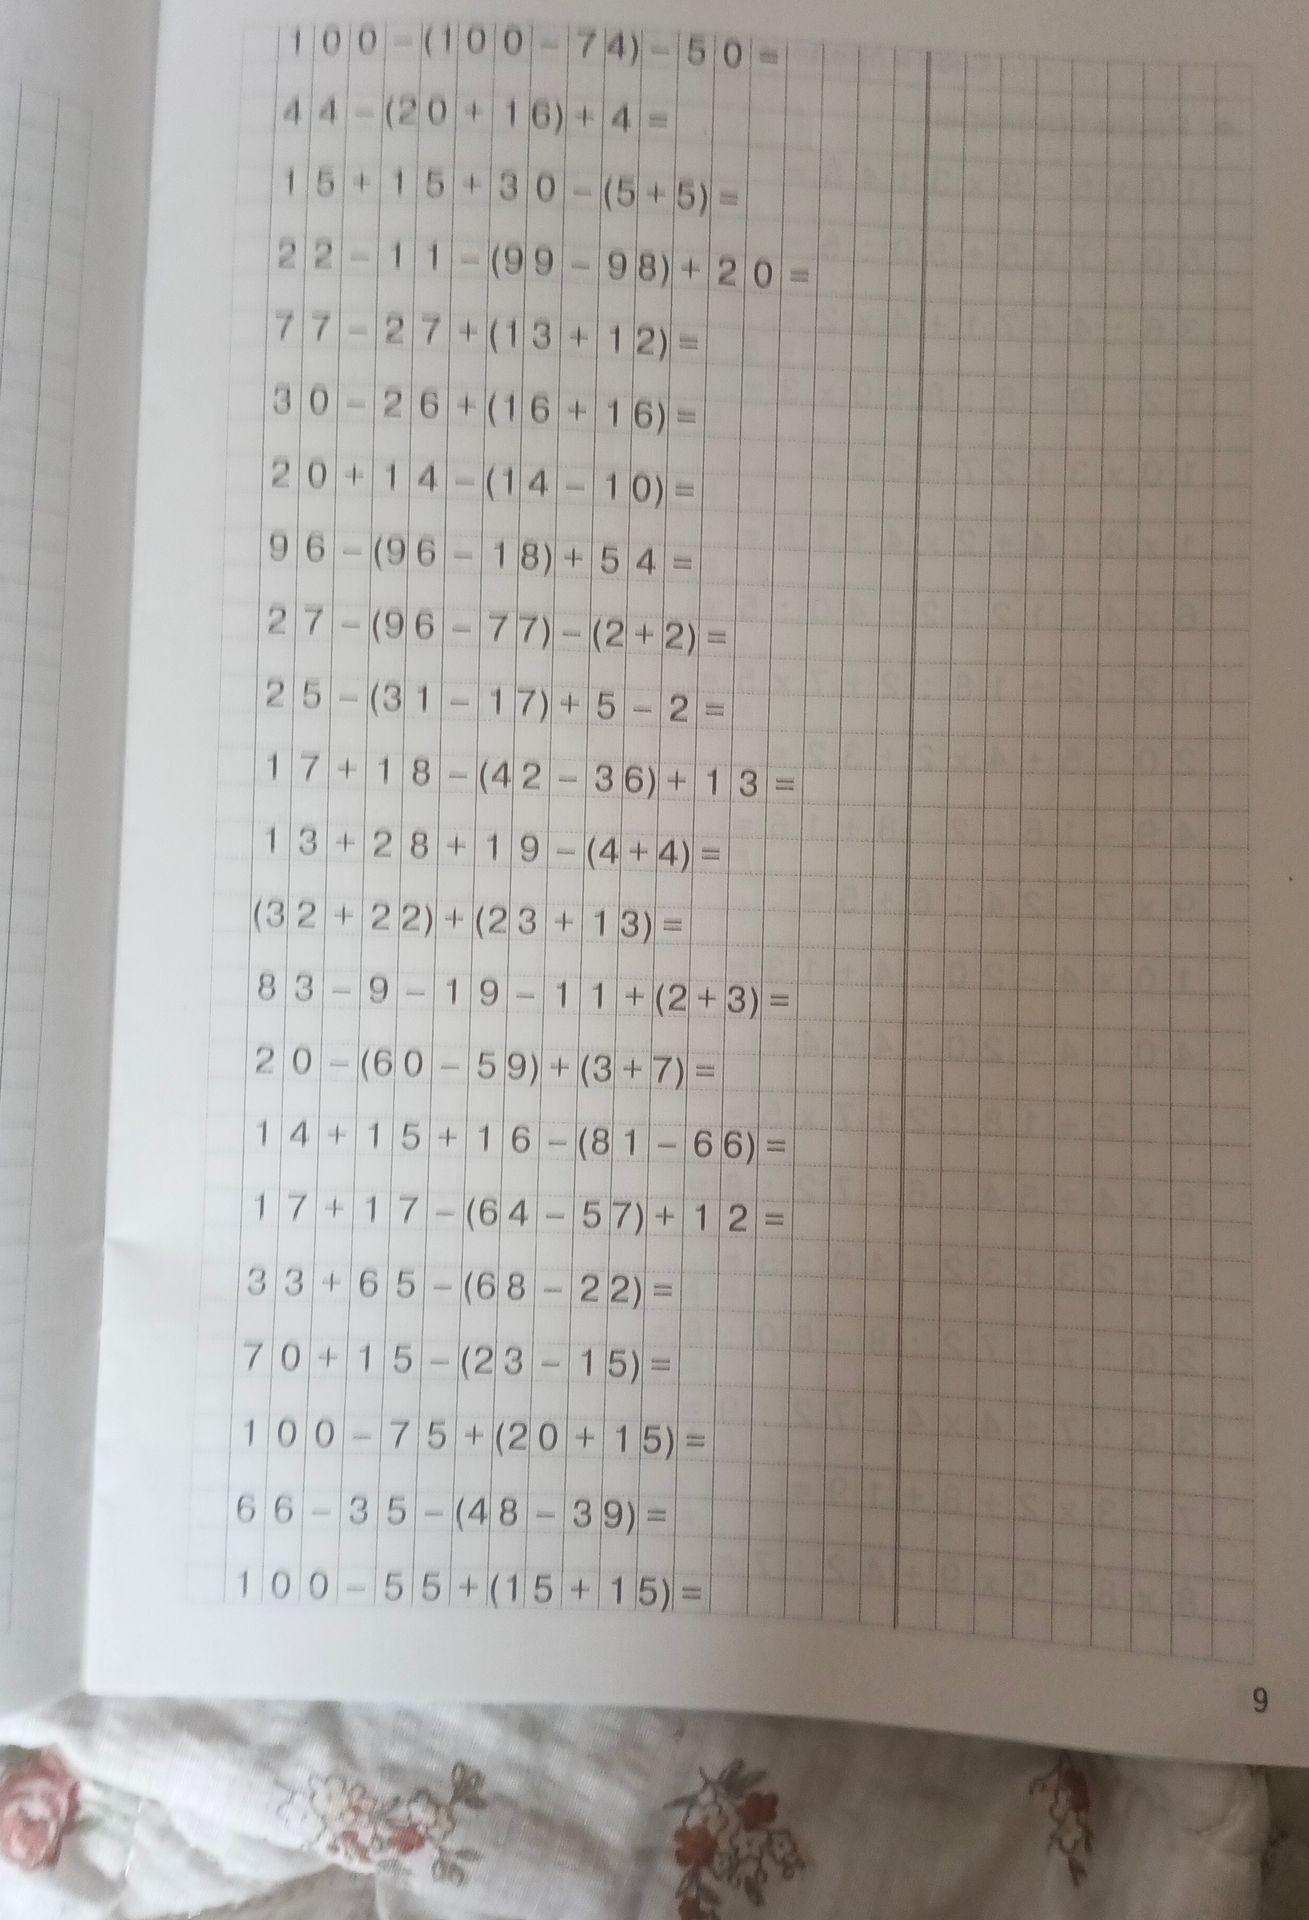 100-(100-74)-50=
44-(20+16)+4=
15+15+30-(5+5)=
22-11-(99-98)+20=
77-27+(13+12)=
30-26+(16+16)=
20+14-(14-10)=
96-(96-18)+54=
27-(96-77)-(2+2)=
25-(31-17)+5-2=
17+18-(42-36)+13=
13+28+19-(4+4)=
(32+22)+(23+13)=
83-9-19-11+(2+3)=
20-(60-59)+(3+7)=
14+15+16-(81-66)=
17+17-(64-57)+12=
33+65-(68-22)=
70+15-(23-15)=
100-75+(20+15)=
66-35-(48-39)=
100-55+(15+15)=
9